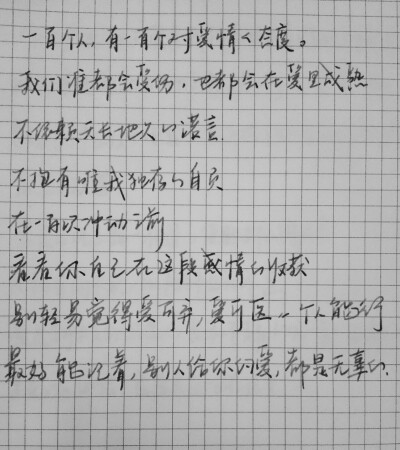 一百个人,有一百个对爱情的态度。
我们谁都会受伤,也都会在爱里成熟
不依赖天长地久的诺言
不抱有唯我独存的自负
在一再次冲动之前
看看你自己在这段感情的收获
别轻易觉得爱可弃,爱可医一个人能行
最好能记着,别人给你的爱,都是无辜的.